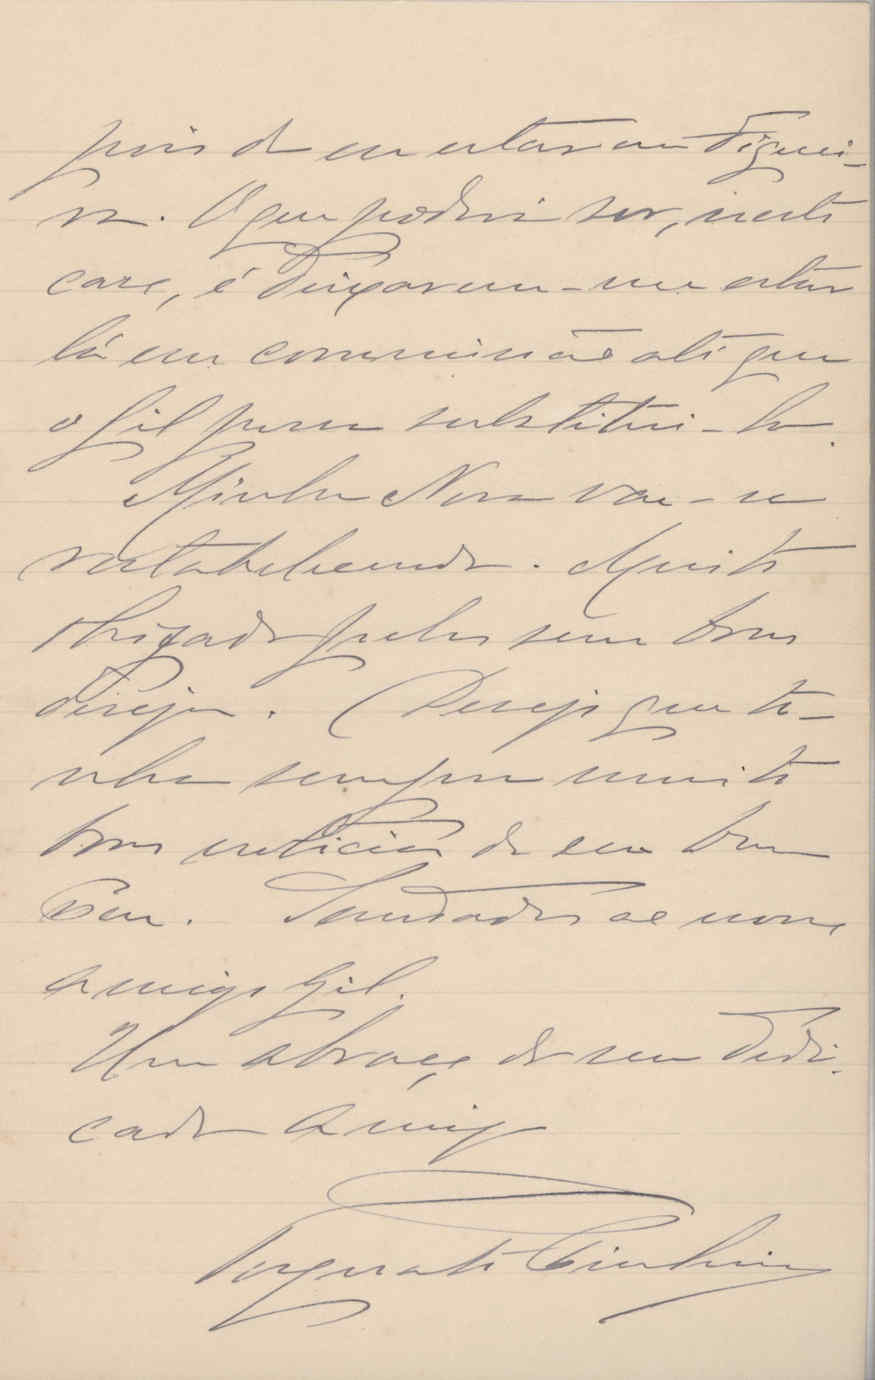 pois de eu estar em Figuei-
ra. O que poderia ser, neste
caso, é deixarem-me estar
lá em commissão até que
o Gil possa substitui-lo.
Minha Nora vae-se
restabelecendo. Muito
obrigado pelos seus bons
desejos. Desejo que te-
nha sempre muito
boas noticias de seu bom
Pae. Saudades ao nosso
amigo Gil.
Um abraço do seu dedi-
cado amigo
Torquato Pinheiro